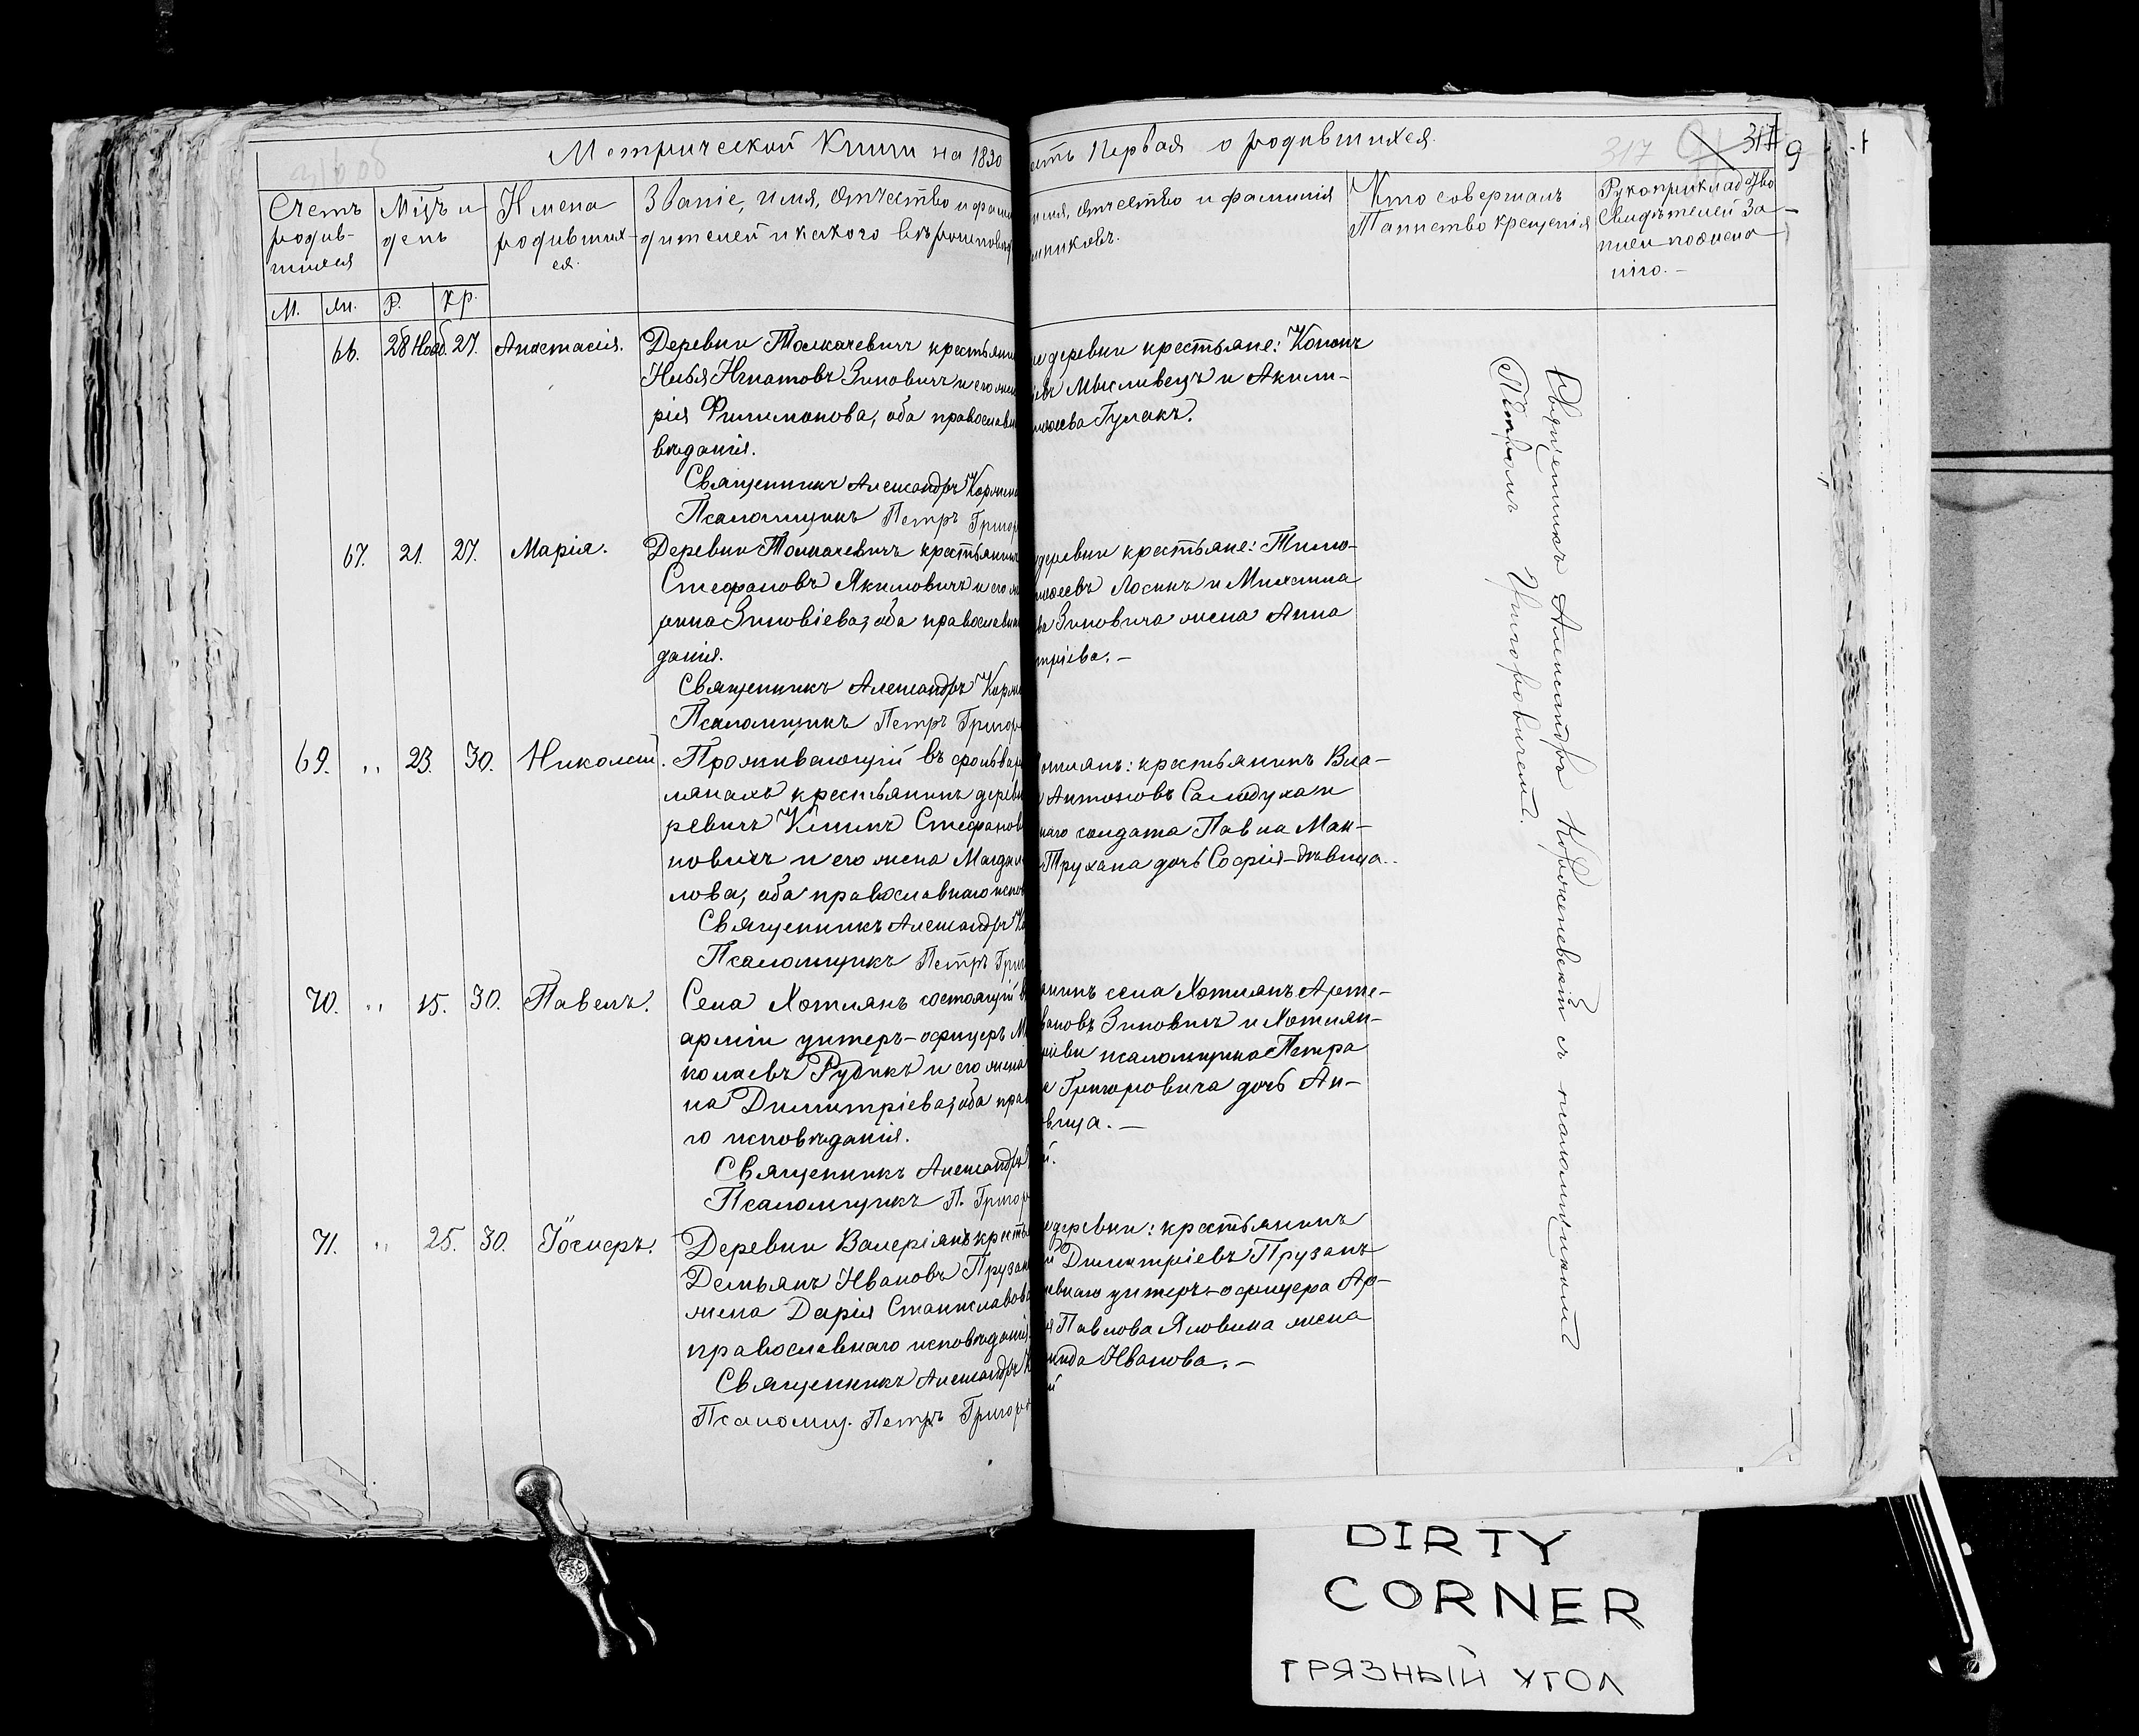 Метрической Книги на 1890
сть Первая о родившихся.
317
317
9
Счетъ родив-шихся
Мѣц. и день
Имена родивших-ся.
Званіе, имя, отчество и фами
дителей и какого вѣроисповѣд
имя, отчество и фамилія
никовъ.
Кто совершалъ Таинство крещенія
Рукоприкладство свидѣтелей за-
М.
Жн.
Р.
Кр.
66.
28 Нояб. 27.
Анастасія.
Деревни Толкачевичъ крестьяни
Илья Игнатовъ Зиновичъ и его жен
рія Филимонова, оба православн
вѣданія.
Священникъ Александръ
Псаломщикъ Петръ Григор
е деревни крестьяне: Кононъ
Мысливецъ и Акили-
Гулакъ.
67.
21.
27.
Марія.
Деревни Толкачевичъ крестьянинъ
Стефановъ Якимовичъ и его ж
рина Зиновіева, оба православн
данія.
Священникъ Александръ
Псаломщикъ Петръ Григор
деревни крестьяне: Тимо-
ѳеевъ Лосикъ и Михаила
ва Зиновича жена Анна
тріева. –
69.
„
23.
30.
Николай.
Проживающій въ фольвар
лянахъ крестьянинъ дерев
ревичъ Климъ Стефанов
новичъ и его жена Магдал
лова, оба православнаго испов
Священникъ Александръ
Псаломщикъ Петръ Григ
отлянъ: крестьянинъ Вла-
Антоновъ Самодухан
наго солдата Павла Мак-
Трухана дочь Софія–дѣвица.
70.
„
15.
30.
Павелъ.
Села Хотлянъ состоящій в
арміи унтеръ-офицеръ М
колаевъ Рудикъ и его жена
на Димитріева, оба прав
го исповѣданія.
Священникъ Александръ
Псаломщикъ П. Григор
нинъ села Хотлянъ Арте-
вановъ Зиновичъ и Хотлян-
псаломщика Петра
Григоровича дочь Ан-
вица. –
й.
71.
„
25.
30.
Іосифъ.
Деревни Валеріянъ кресть
Демьянъ Ивановъ Прузан
жена Дарія Станиславова
православнаго исповѣданія.
Священникъ Александръ К
Псаломщ. Петръ Григоро
деревни: крестьянинъ
й Димитріевъ Прузанъ
унтеръ-офицера Ар-
я Павлова Яловика жена
Иванова. –
й
Священникъ Александръ Корженевскій съ псаломщикомъ
Петромъ Григоровичемъ.
DIRTY
CORNER
ГРЯЗНЫЙ УГОЛ